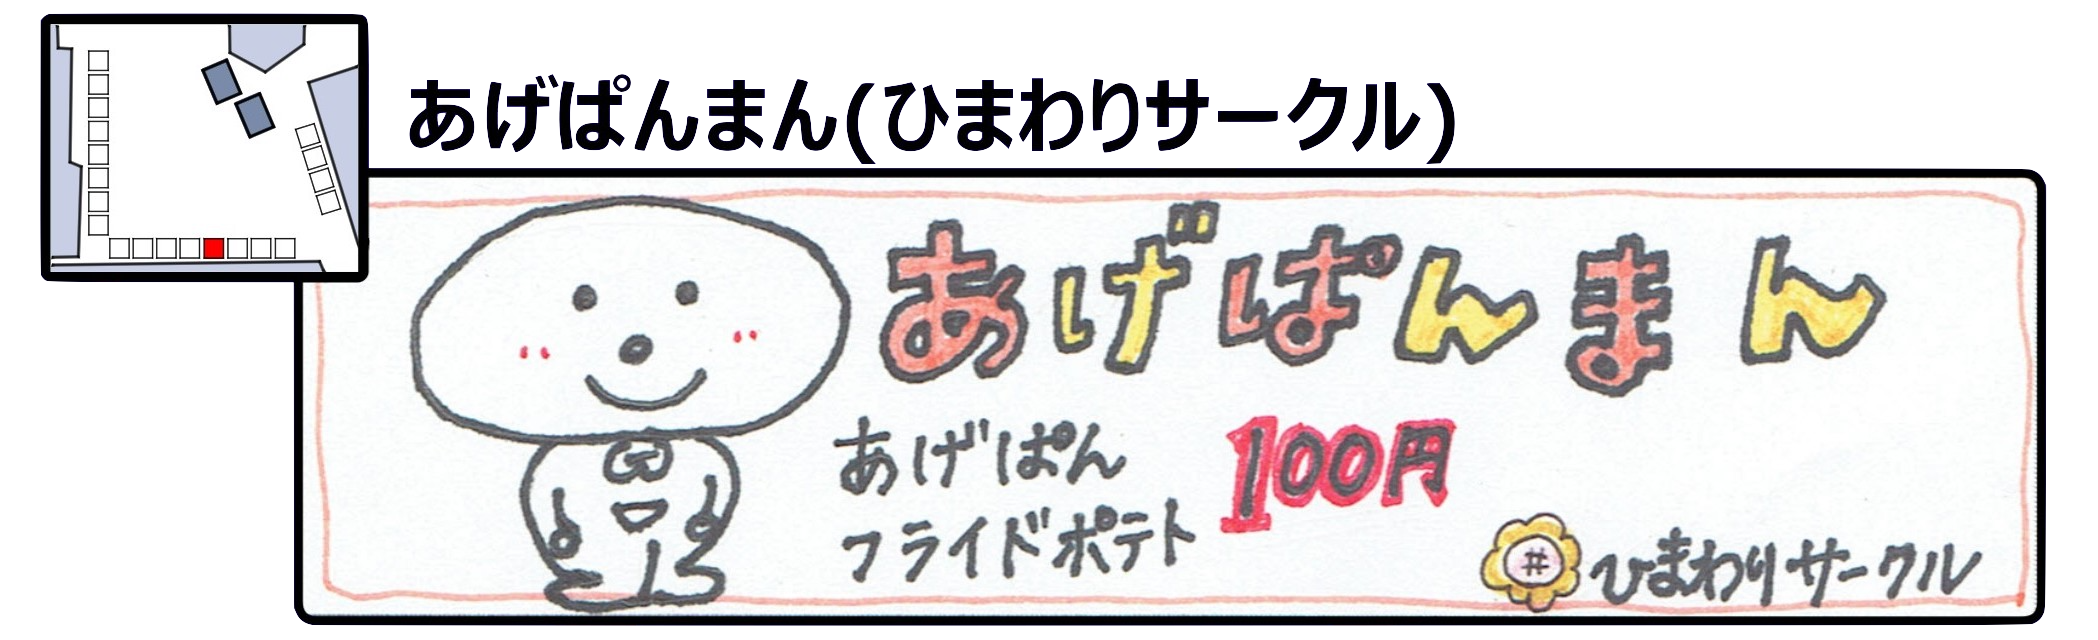 あげぱんまん(ひまわりサークル)
あげぱんまん
あげぱん 100円
フライドポテト
ひまわりサークル